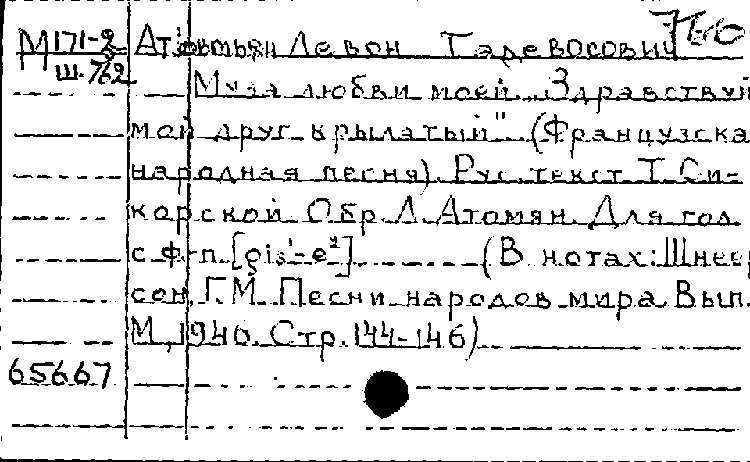 7610
М 171-2 Атовмьян Левон Тадевосович
Ш-762
Муза любви моей „Здравствуй
мой друг крылатый" (Французска
народная песня). Рус. текст Т. Си-
корской Обр Л. Атомян. Для гол.
с ф-п. [gis¹-e²] (В нотах: Шнеер
сон, Г.М. Песни народов мира Вып.
М., 1946. Стр. 144-146)
65667